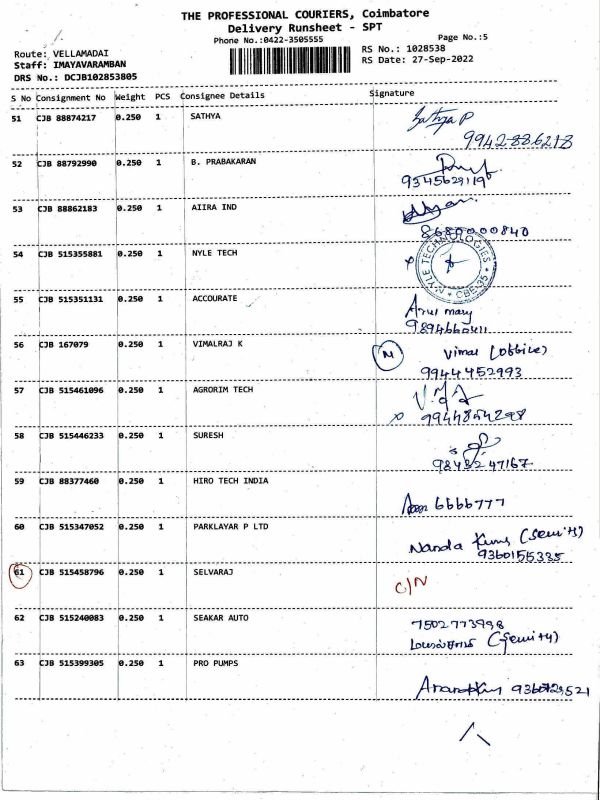 THE PROFESSIONAL COURIERS, Coimbatore
Delivery Runsheet - SPT
Phone No.:0422-3505555
Page No.:5
Route: VELLAMADAI
RS No.: 1028538
Staff: IMAYAVARAMBAN
RS Date: 27-Sep-2022
DRS No.: DCJB102853805
S No Consignment No Weight PCS Consignee Details Signature
51 CJB 88874217 0.250 1 SATHYA Sathya P
9942886213
52 CJB 88792990 0.250 1 B. PRABAKARAN
9345629119
53 CJB 88862183 0.250 1 AIIRA IND
8680000840
54 CJB 515355881 0.250 1 NYLE TECH
NYLE TECHNOLOGIES * CBE-35 *
55 CJB 515351131 0.250 1 ACCOURATE Arul mary
9894660411
56 CJB 167079 0.250 1 VIMALRAJ K N Vimal (obbice)
9944452993
57 CJB 515461096 0.250 1 AGRORIM TECH
9944854298
58 CJB 515446233 0.250 1 SURESH
9843247167
59 CJB 88377460 0.250 1 HIRO TECH INDIA
6666777
60 CJB 515347052 0.250 1 PARKLAYAR P LTD Nanda Kumar
9360155335
61 CJB 515458796 0.250 1 SELVARAJ C/N
62 CJB 515240083 0.250 1 SEAKAR AUTO 7502773998
63 CJB 515399305 0.250 1 PRO PUMPS